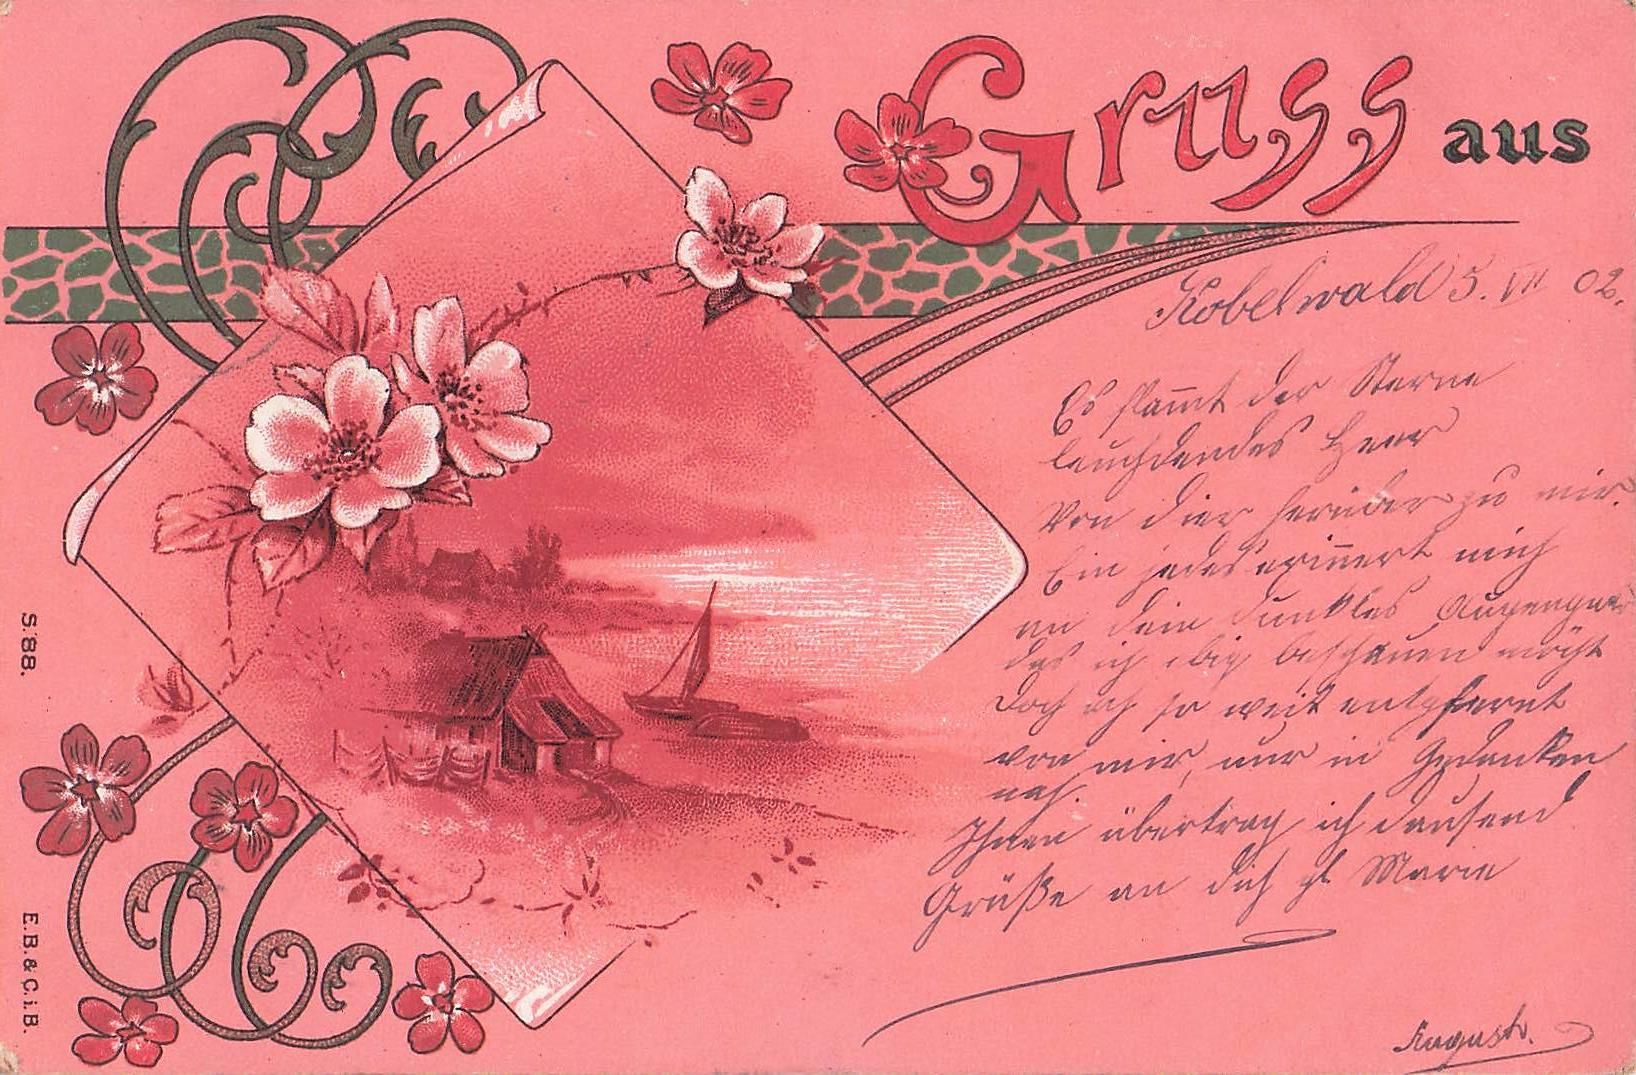 Gruss aus
Kobelwald 5. VII 02.
Es flam̅t der Sterne
leuchdendes Heer
Von dier herüber zu mir.
Ein jedes erin̅ert mich
an dein dunkles
das ich ebig beschauen möcht
doch ach so weit entpfernt
von mir, nur in Gedanken
nah.
Ihnen übertrag ich dausend
Grüße an dich gl. Marie
August.
S. 88.
E. B. & C. i. B.